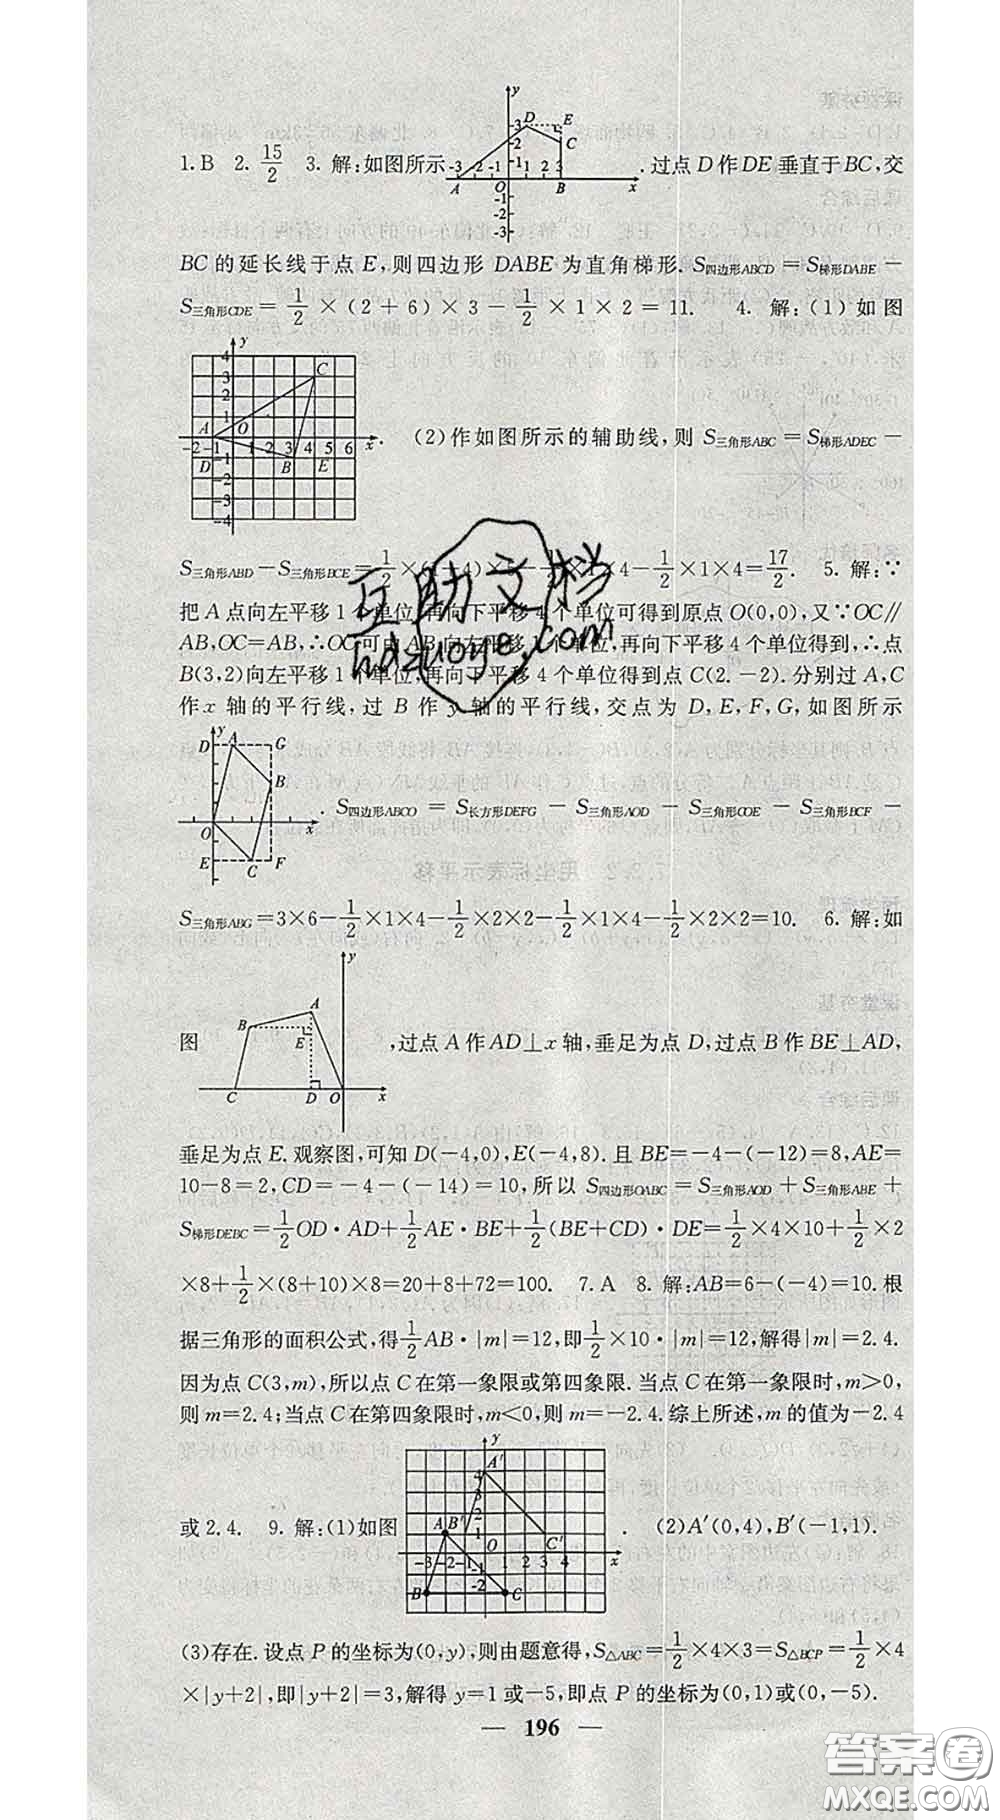 1.B 2. 15/2 3. 解:如图所示 .过点D作DE垂直于BC,交
BC的延长线于点E,则四边形DABE为直角梯形.S四边形ABCD=S梯形DABE-
S三角形CDE=1/2×(2+6)×3-1/2×1×2=11. 4. 解:(1)如图
. (2)作如图所示的辅助线,则S三角形ABC=S梯形ADEC-
S三角形ABD-S三角形BCE=1/2×( 4) ×1×4-1/2×1×4=17/2. 5. 解:∵
把A点向左平移1个单位,再向下平移4个单位可得到原点O(0,0),又∵OC∥
AB,OC=AB,∴OC可由AB向左平移1个单位,再向下平移4个单位得到,∴点
B(3,2)向左平移1个单位,再向下平移4个单位得到点C(2.-2).分别过A,C
作x轴的平行线,过B作y轴的平行线,交点为D,E,F,G,如图所示
. S四边形ABCO=S长方形DEFG-S三角形AOD-S三角形COE-S三角形BCF-
S三角形ABG=3×6-1/2×1×4-1/2×2×2-1/2×1×4-1/2×2×2=10. 6. 解:如
图 ,过点A作AD⊥x轴,垂足为点D,过点B作BE⊥AD,
垂足为点E.观察图,可知D(-4,0),E(-4,8).且BE=-4-(-12)=8,AE=
10-8=2,CD=-4-(-14)=10,所以S四边形OABC=S三角形AOD+S三角形ABE+
S梯形DEBC=1/2OD·AD+1/2AE·BE+1/2(BE+CD)·DE=1/2×4×10+1/2×2
×8+1/2×(8+10)×8=20+8+72=100. 7.A 8. 解:AB=6-(-4)=10.根
据三角形的面积公式,得1/2AB·|m|=12,即1/2×10·|m|=12,解得|m|=2.4.
因为点C(3,m),所以点C在第一象限或第四象限.当点C在第一象限时,m>0,
则m=2.4;当点C在第四象限时,m<0,则m=-2.4.综上所述,m的值为-2.4
或2.4. 9. 解:(1)如图 . (2)A′(0,4),B′(-1,1).
(3)存在.设点P的坐标为(0,y),则由题意得,S△ABC=1/2×4×3=S△BCP=1/2×4
×|y+2|,即|y+2|=3,解得y=1或-5,即点P的坐标为(0,1)或(0,-5).
— 196 —
互助文档
hdzuoye.com
答案圈
MXQE.COM